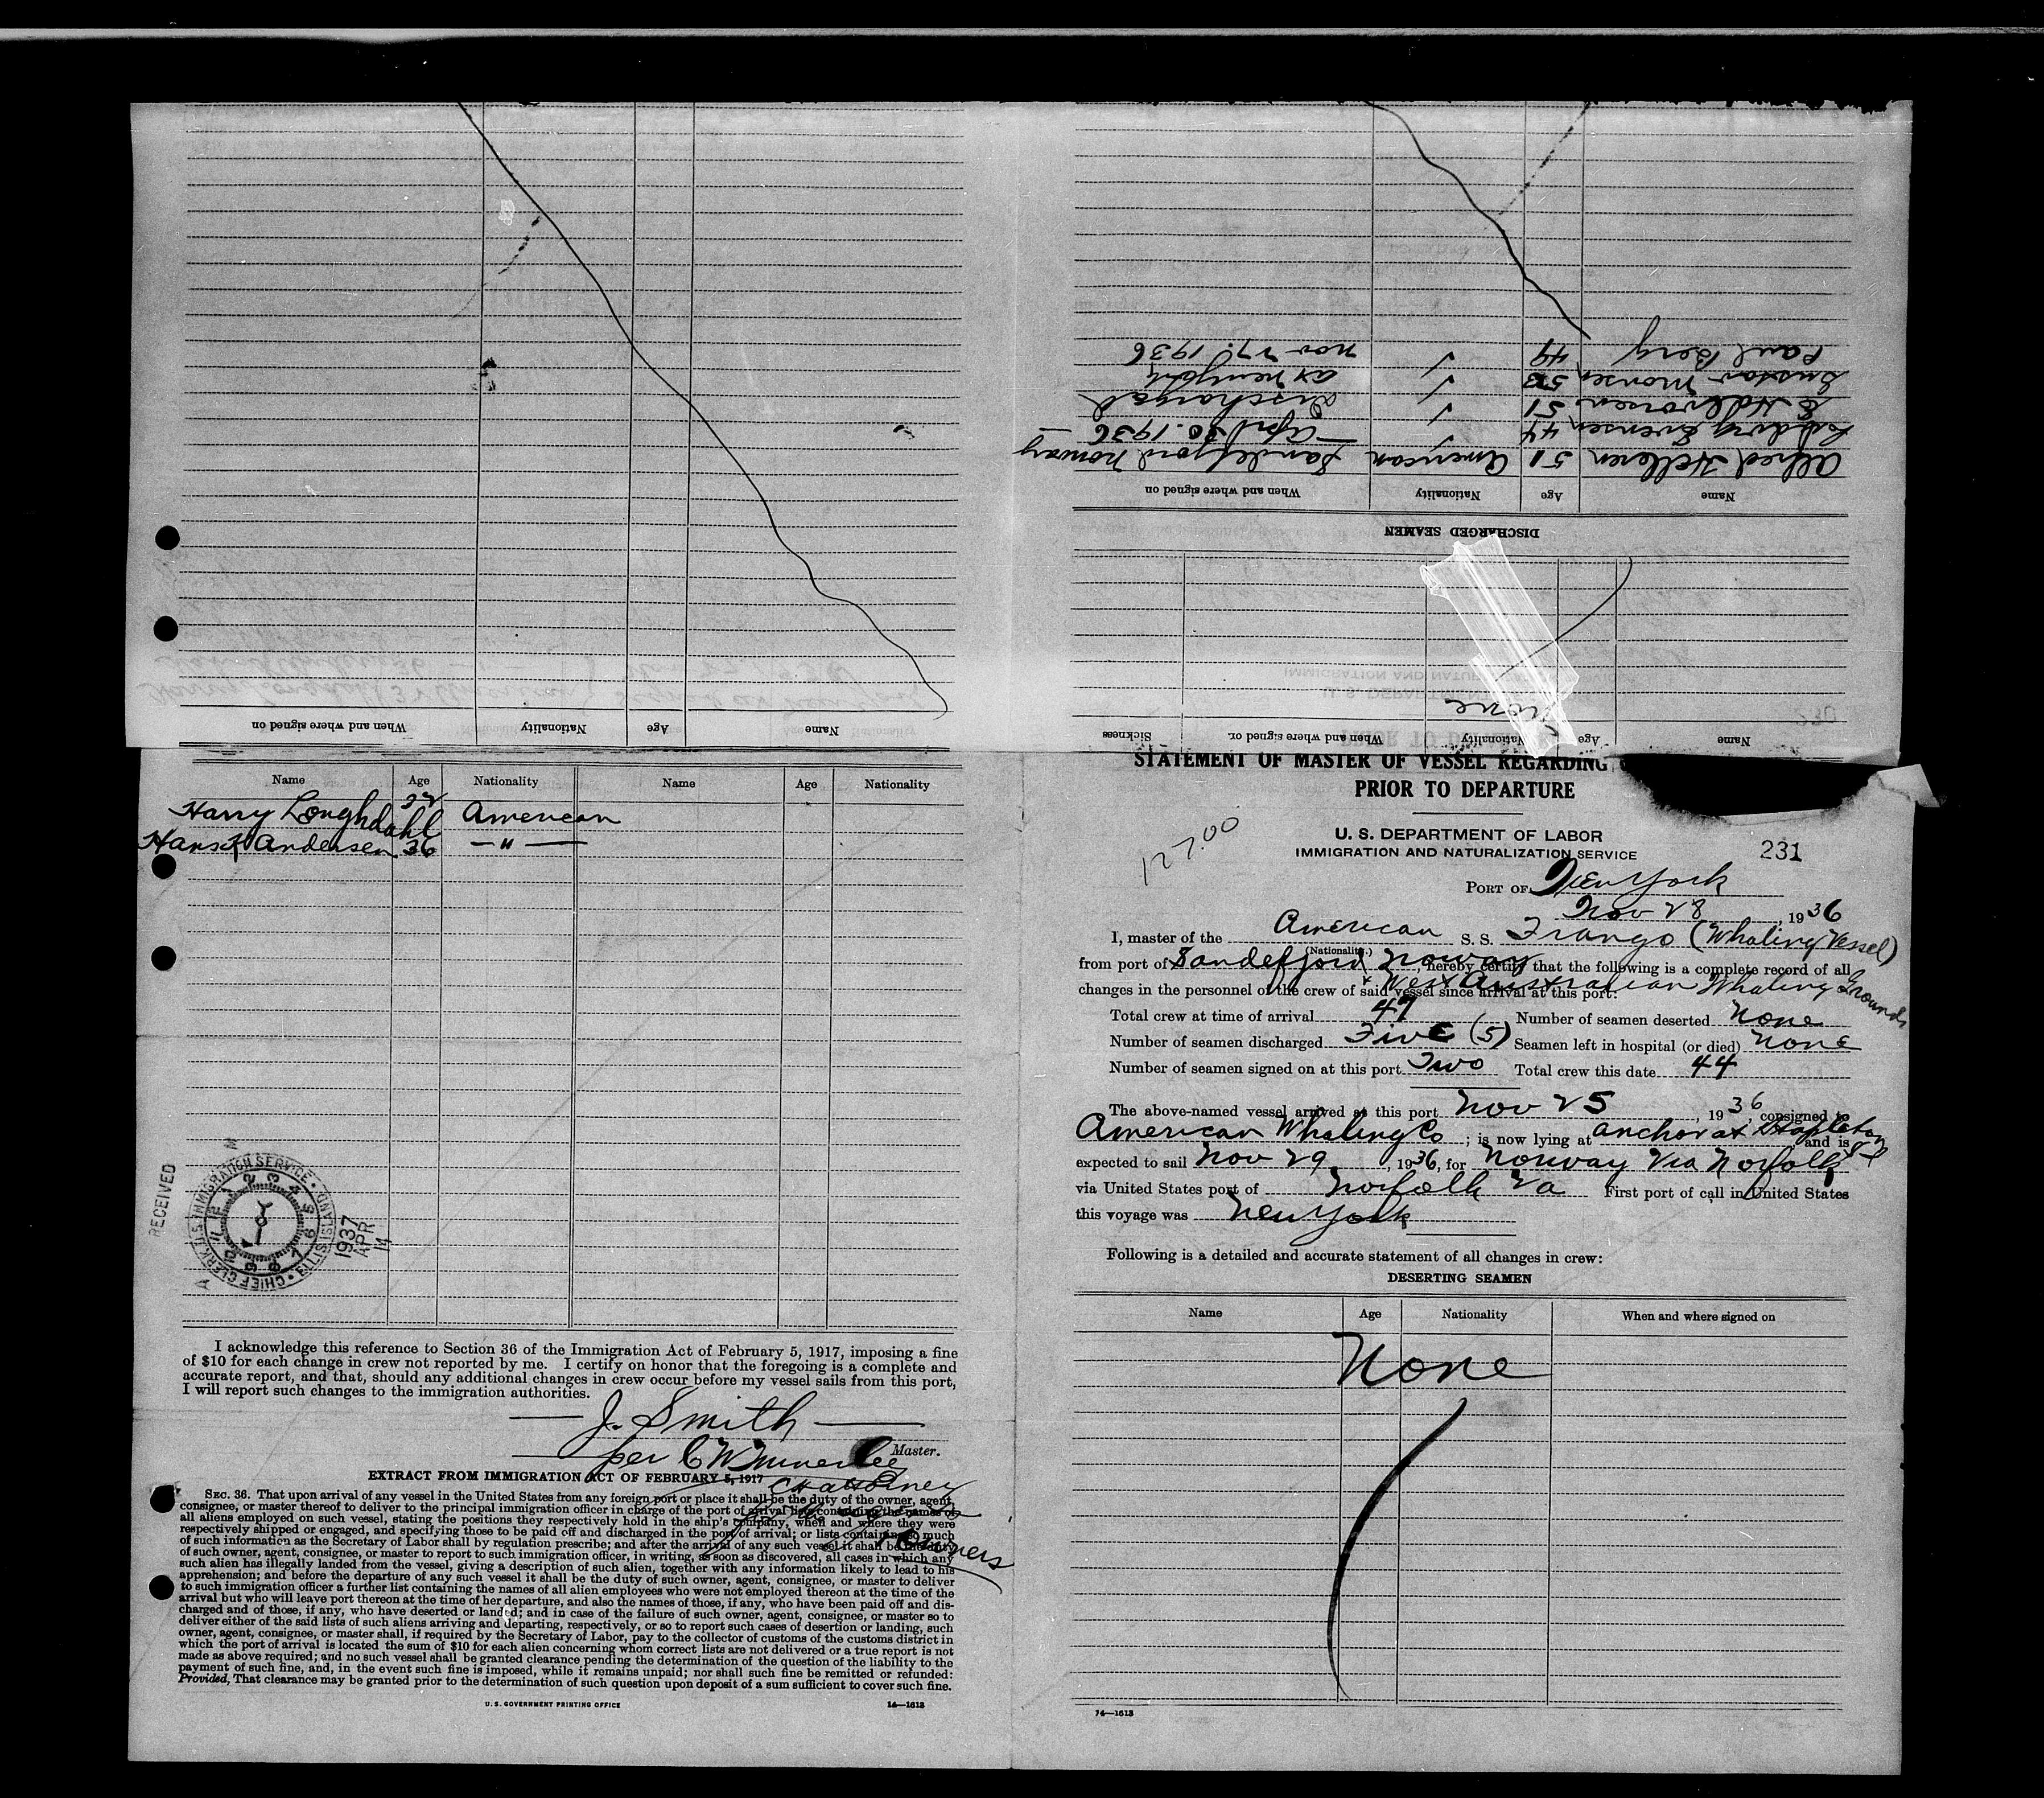 STATEMENT OF MASTER OF VESSEL REGARDING
PRIOR TO DEPARTURE
U. S. DEPARTMENT OF LABOR
IMMIGRATION AND NATURALIZATION SERVICE
231
127.00
PORT OF New York
Nov 28, 1936
I, master of the American S. S. Frango (Whaling Vessel)
(Nationality.)
from port of Sandefjord Norway, hereby certify that the following is a complete record of all
& West Australian Whaling Grounds
changes in the personnel of the crew of said vessel since arrival at this port:
Total crew at time of arrival 47 Number of seamen deserted None
Number of seamen discharged Five (5) Seamen left in hospital (or died) None
Number of seamen signed on at this port Two Total crew this date 44
The above-named vessel arrived at this port Nov 25, 1936, consigned to
American Whaling Co; is now lying at anchor at Stapleton SI and is
expected to sail Nov 29, 1936, for Norway Via Norfolk
via United States port of Norfolk Va First port of call in United States
this voyage was New York
Following is a detailed and accurate statement of all changes in crew:
DESERTING SEAMEN
Name Age Nationality When and where signed on
None
14—1613
Name Age Nationality When and where signed on Sickness
None
DISCHARGED SEAMEN
Name Age Nationality When and where signed on
Alfred Helleren 51 American Sandefjord Norway
Ludvig Evensen 44 " — April 30. 1936 —
E Halvorsen 51 " Discharged
Gustav Monsen 53 " at New York
Paul Berg 49 " Nov 27. 1936
Name Age Nationality When and where signed on
Name Age Nationality Name Age Nationality
Harry Longhdahl 32 American
Hans K Andersen 36 — " —
RECEIVED
CHIEF CLERK U.S. IMMIGRATION SERVICE • ELLIS ISLAND •
1937
APR
14
I acknowledge this reference to Section 36 of the Immigration Act of February 5, 1917, imposing a fine
of $10 for each change in crew not reported by me. I certify on honor that the foregoing is a complete and
accurate report, and that, should any additional changes in crew occur before my vessel sails from this port,
I will report such changes to the immigration authorities.
— J. Smith —
per C W
Master.
EXTRACT FROM IMMIGRATION ACT OF FEBRUARY 5, 1917
Attorney
Owners
SEC. 36. That upon arrival of any vessel in the United States from any foreign port or place it shall be the duty of the owner, agent,
consignee, or master thereof to deliver to the principal immigration officer in charge of the port of arrival lists containing the names of
all aliens employed on such vessel, stating the positions they respectively hold in the ship's company, when and where they were
respectively shipped or engaged, and specifying those to be paid off and discharged in the port of arrival; or lists containing so much
of such information as the Secretary of Labor shall by regulation prescribe; and after the arrival of any such vessel it shall be the duty
of such owner, agent, consignee, or master to report to such immigration officer, in writing, as soon as discovered, all cases in which any
such alien has illegally landed from the vessel, giving a description of such alien, together with any information likely to lead to his
apprehension; and before the departure of any such vessel it shall be the duty of such owner, agent, consignee, or master to deliver
to such immigration officer a further list containing the names of all alien employees who were not employed thereon at the time of the
arrival but who will leave port thereon at the time of her departure, and also the names of those, if any, who have been paid off and dis-
charged and of those, if any, who have deserted or landed; and in case of the failure of such owner, agent, consignee, or master so to
deliver either of the said lists of such aliens arriving and departing, respectively, or so to report such cases of desertion or landing, such
owner, agent, consignee, or master shall, if required by the Secretary of Labor, pay to the collector of customs of the customs district in
which the port of arrival is located the sum of $10 for each alien concerning whom correct lists are not delivered or a true report is not
made as above required; and no such vessel shall be granted clearance pending the determination of the question of the liability to the
payment of such fine, and, in the event such fine is imposed, while it remains unpaid; nor shall such fine be remitted or refunded:
Provided, That clearance may be granted prior to the determination of such question upon deposit of a sum sufficient to cover such fine.
U. S. GOVERNMENT PRINTING OFFICE 14—1613